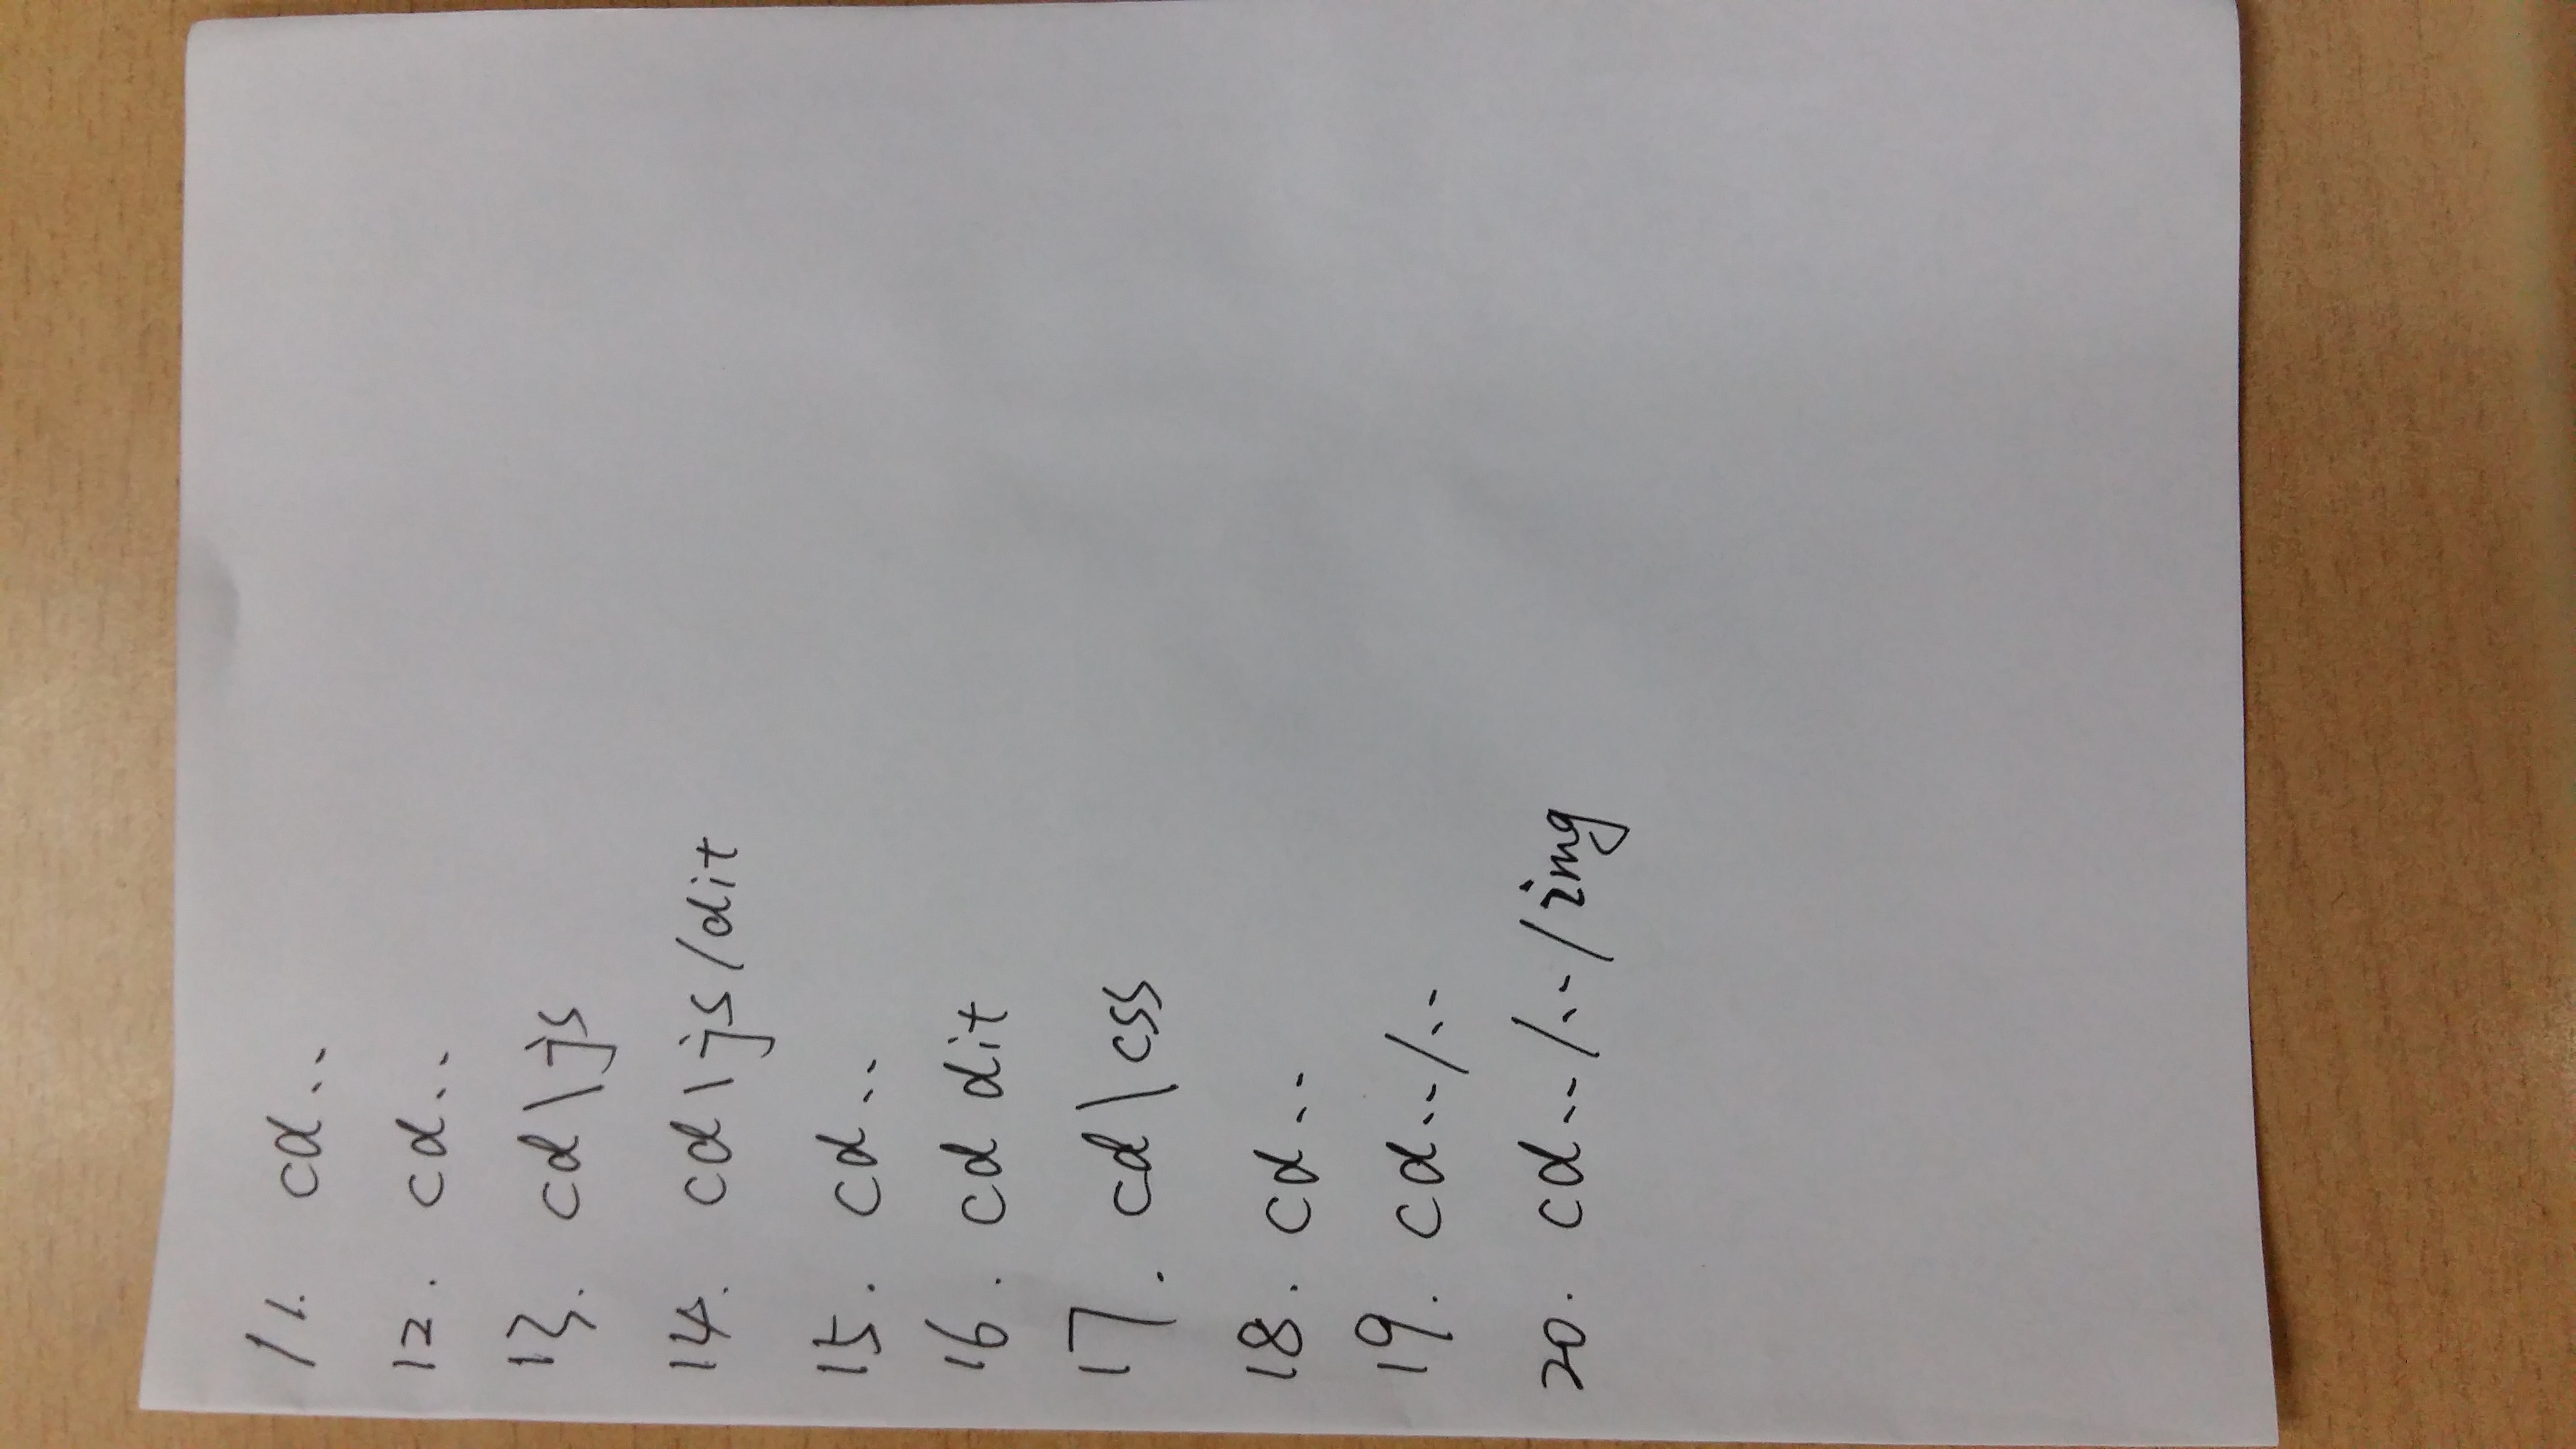 11. cd..
12. cd..
13. cd\js
14. cd\js/dit
15. cd..
16. cd dit
17. cd\css
18. cd..
19. cd../..
20. cd../../img